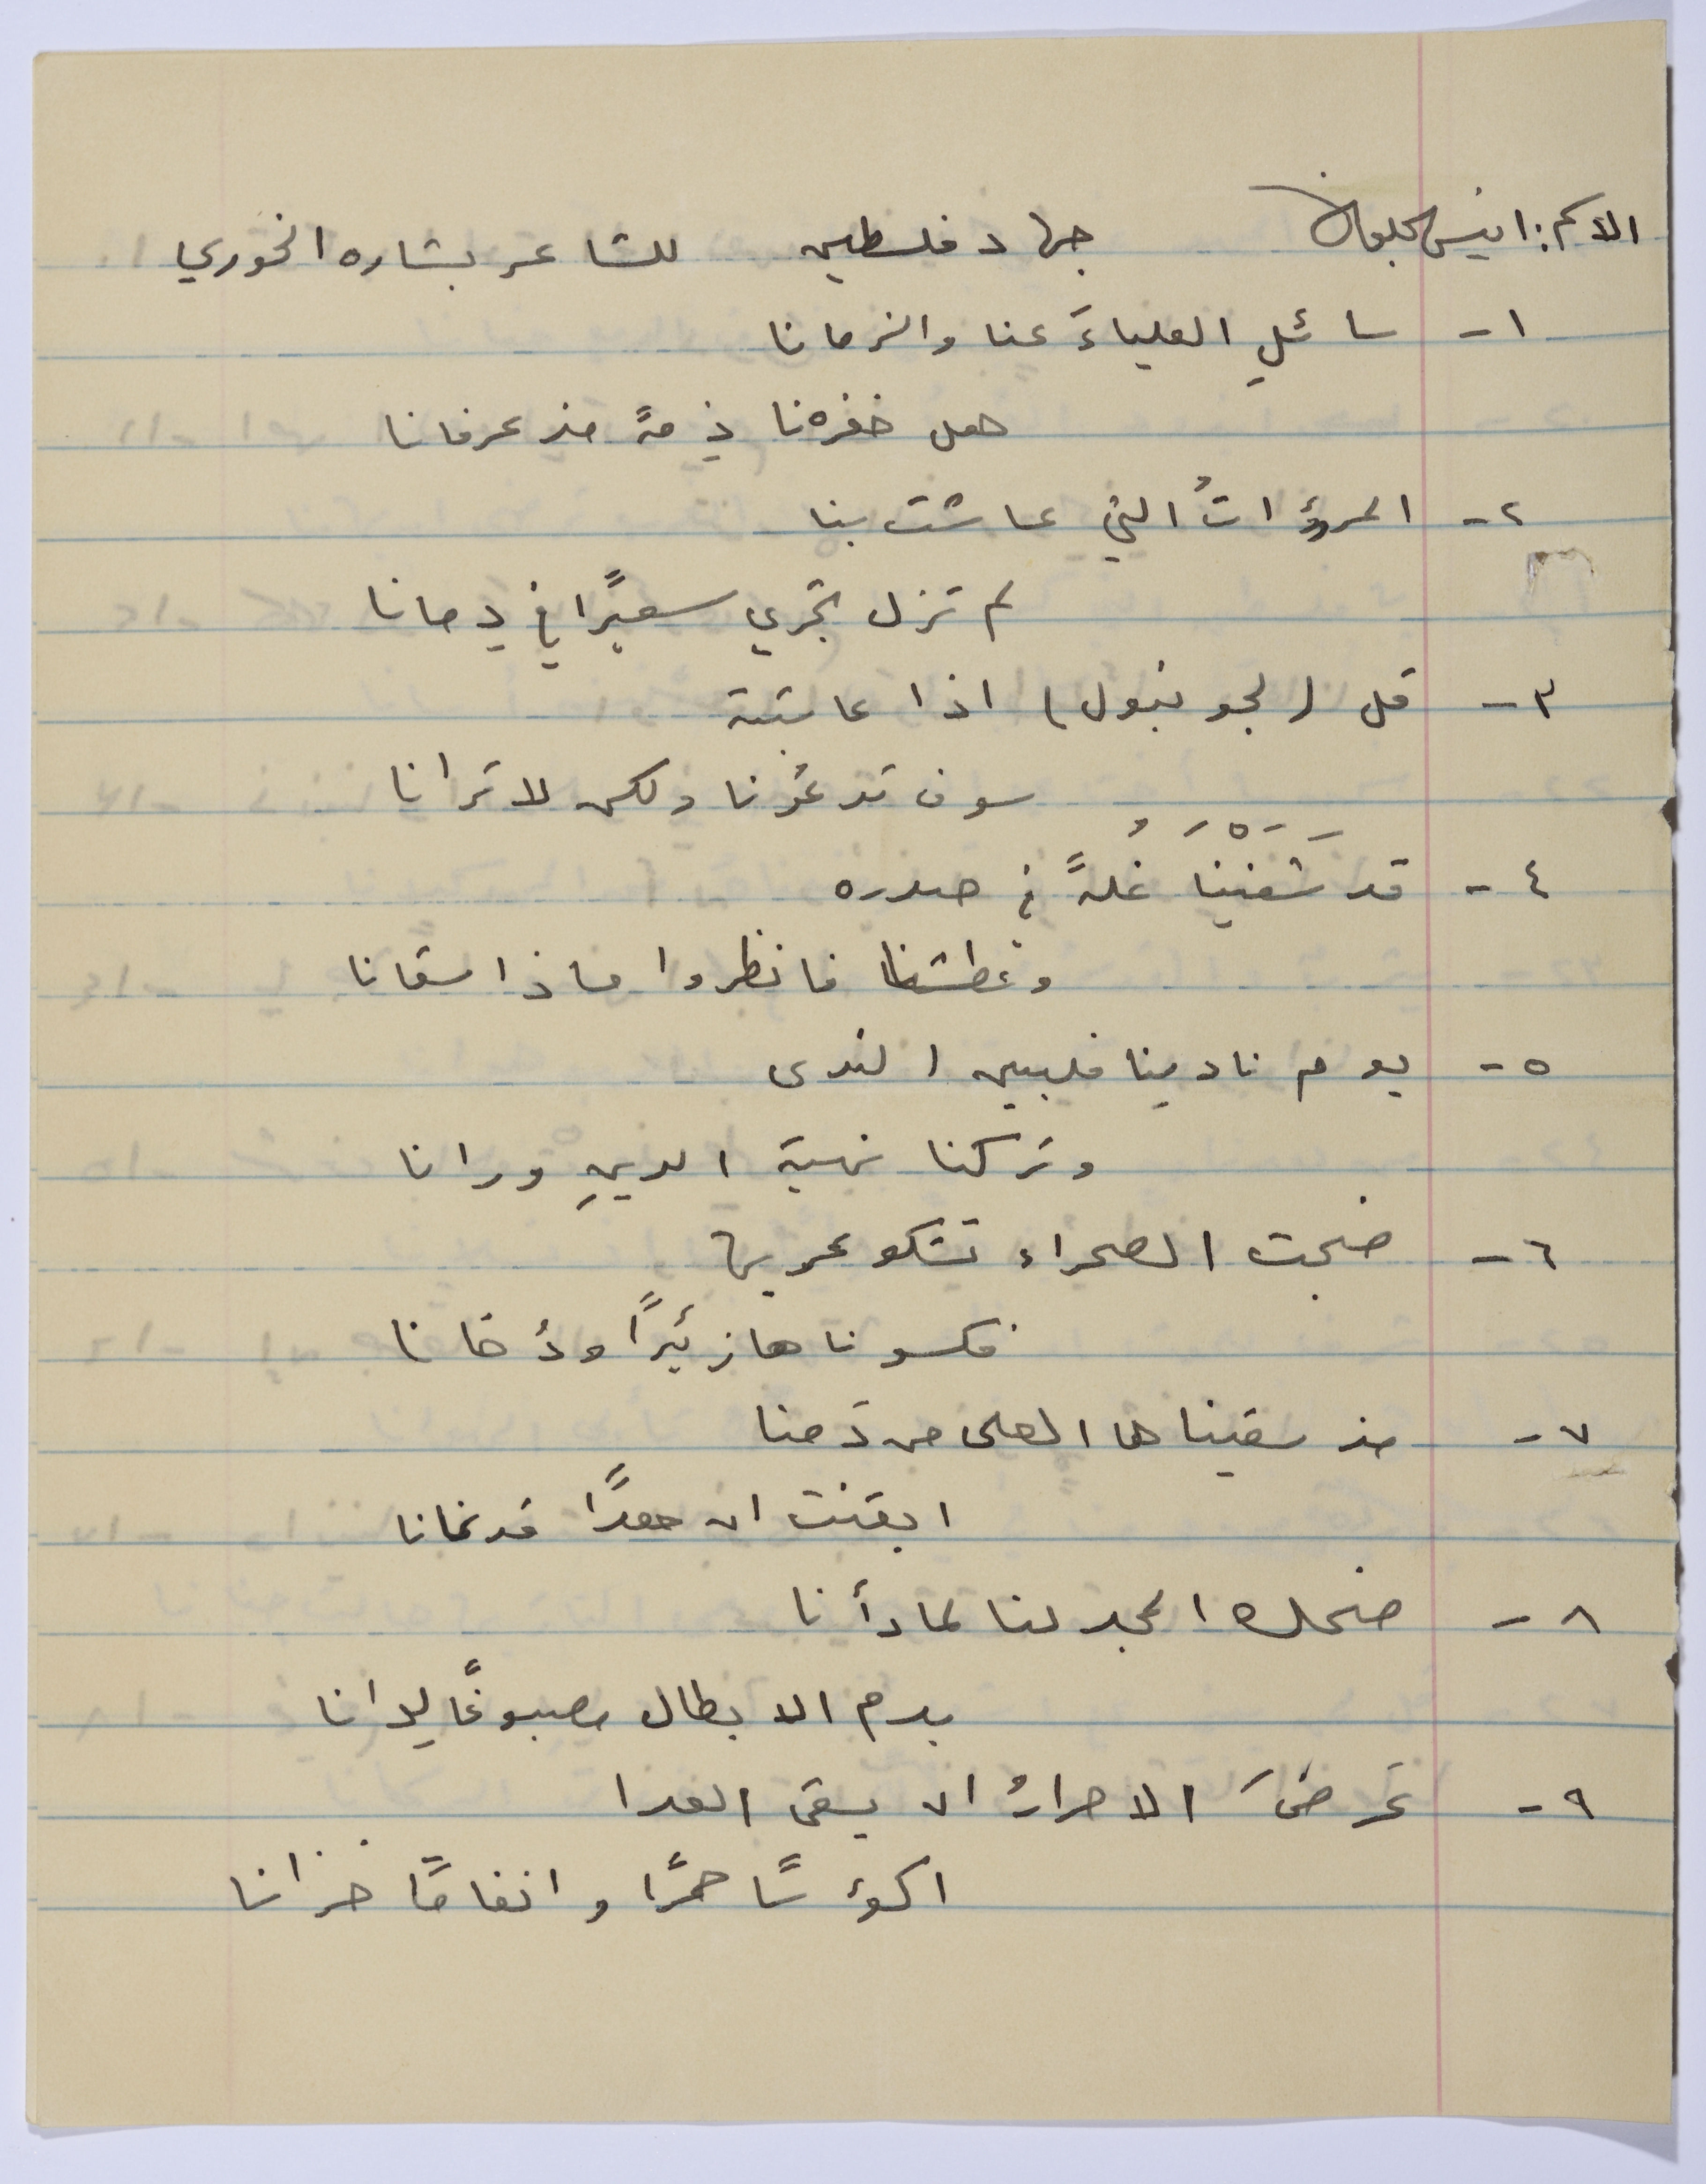 الاسم: انيس جهاد فلسطين للشاعر بشاره الخوري
١- سائلي العلياءَ عنا والزمانا
هل خفرنا ذمةً مذ عرفانا
٢- المروؤاتُ التي عاشت بنا
لم تزل تجري سعيرًا في دمانا
٣- قل (لجونبول) اذا عاتبته
سوف تدعُونا ولكن لا ترانا
٤- قد شَفَيْنا غُلةً في صدره
وعطشنا فانظروا ماذا سقانا
٥- يوم نادينا فلبين الندى
وتركنا نهية الدينِ ورانا
٦- ضجت الصحراء تشكو عريها
فكسوناها زئيرًا ودُخانا
٧- مذ سقيناها العلى من دَمنا
ايقنت ان معدًا قد نمانا
٨- ضحك المجد لنا لما رأنا
بدم الابطال مصبوغًا لوانا
٩- عَرضَ الاحرارُ ان يسقى العدا
اكؤسًا حمرًا وانغامًا حزانا